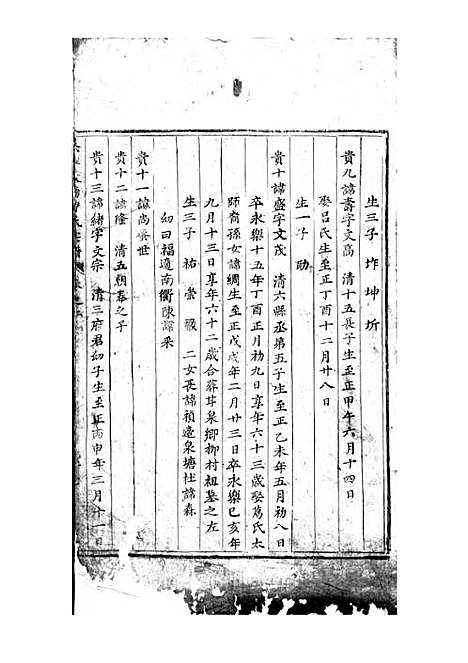 生三子 炸 坤 圻
貴九諱壽字文高 清十五長子生至正甲午六月十四日
娶呂氏生至正丁酉十二月廿八日
生一子 勛
貴十諱盛字文茂 清六縣丞第五子生至正乙未年五月初八日
卒永樂十五年丁酉正月初九日享年六十三歲娶葛氏太
師裔孫女諱綢生至正戊戌年二月廿三日卒永樂己亥年
九月十三日享年六十二歲合葬茸泉鄉柳村祖墓之左
生三子 祐 崇 二女長諱禎適泉塘杜諱森
幼曰福適南衢陳諱采
貴十一諱尚 世
貴十二諱隆 清五朝奉之子
貴十三諱緒字文宗 清三府君幼子生至正丙申年三月十一日